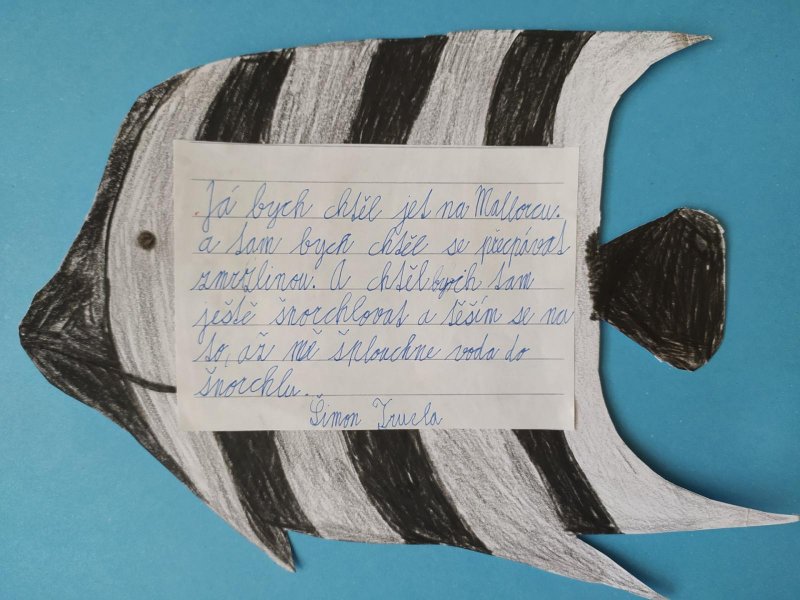 Já bych chtěl jet na Mallorcu.
a tam bych chtěl se přecpávat
zmrzlinou. A chtěl bych tam
ještě šnorchlovat a těším se na
to, až mě šplouchne voda do
šnorchlu.
Šimon